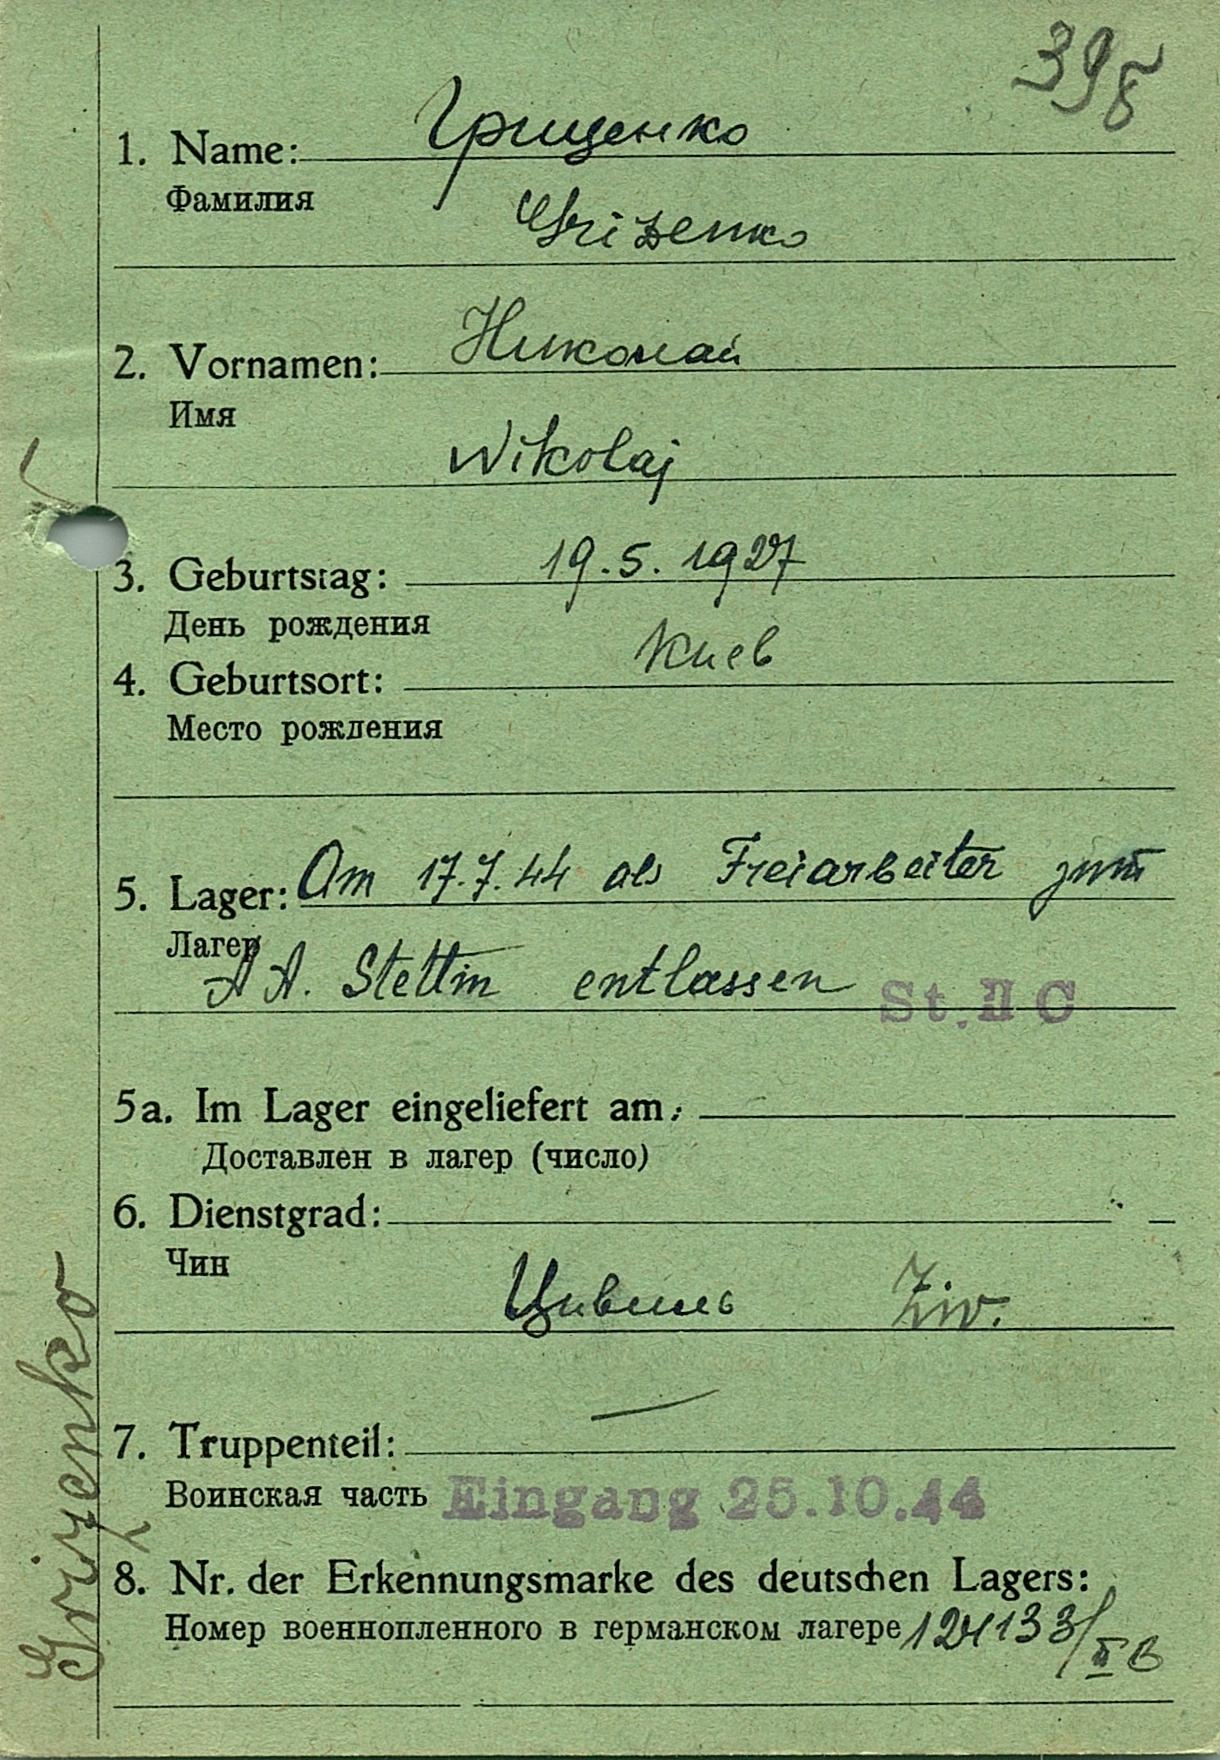 398
1. Name: Грищенко
Фамилия
Grizenko
2. Vornamen: Николай
Имя
Nikolaj
3. Geburtstag: 19.5.1927
День рождения
4. Geburtsort: Киев
Место рождения
5. Lager: Am 17.7.44 als Freiarbeiter zum
Лагер
A A. Stettin entlassen St. II C
5a. Im Lager eingeliefert am:
Доставлен в лагер (число)
6. Dienstgrad:
Чин
Цивиль Ziv.
7. Truppenteil: —
Воинская часть Eingang 25.10.44
8. Nr. der Erkennungsmarke des deutschen Lagers:
Номер военнопленного в германском лагере /II B
Grizenko